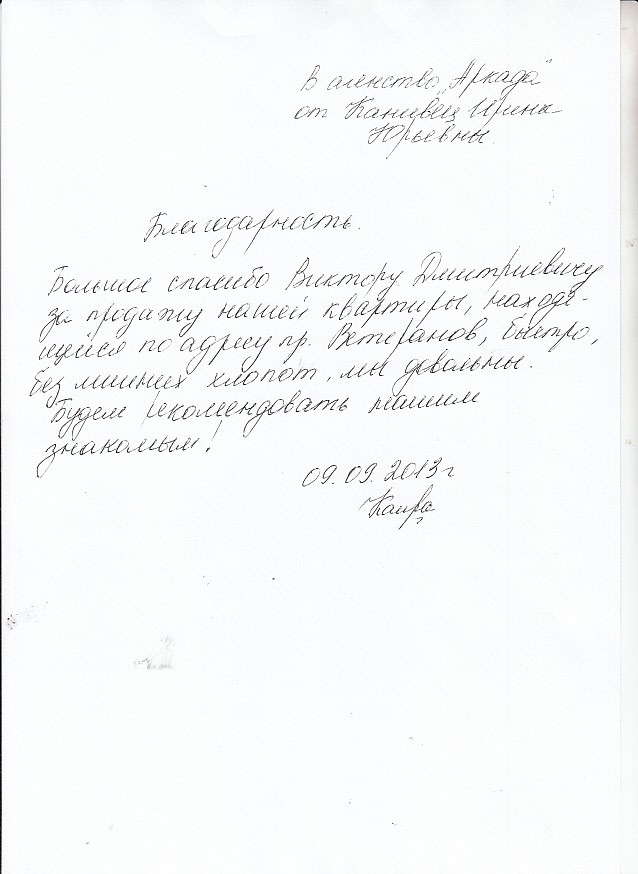 В агенство „Аркада"
от Канивец Ирины
Юрьевны.
Благодарность.
Большое спасибо Виктору Дмитриевичу
за продажу нашей квартиры, находя-
щейся по адресу пр. Ветеранов, быстро,
без лишних хлопот, мы довольны.
Будем рекомендовать нашим
знакомым!
09.09.2013г